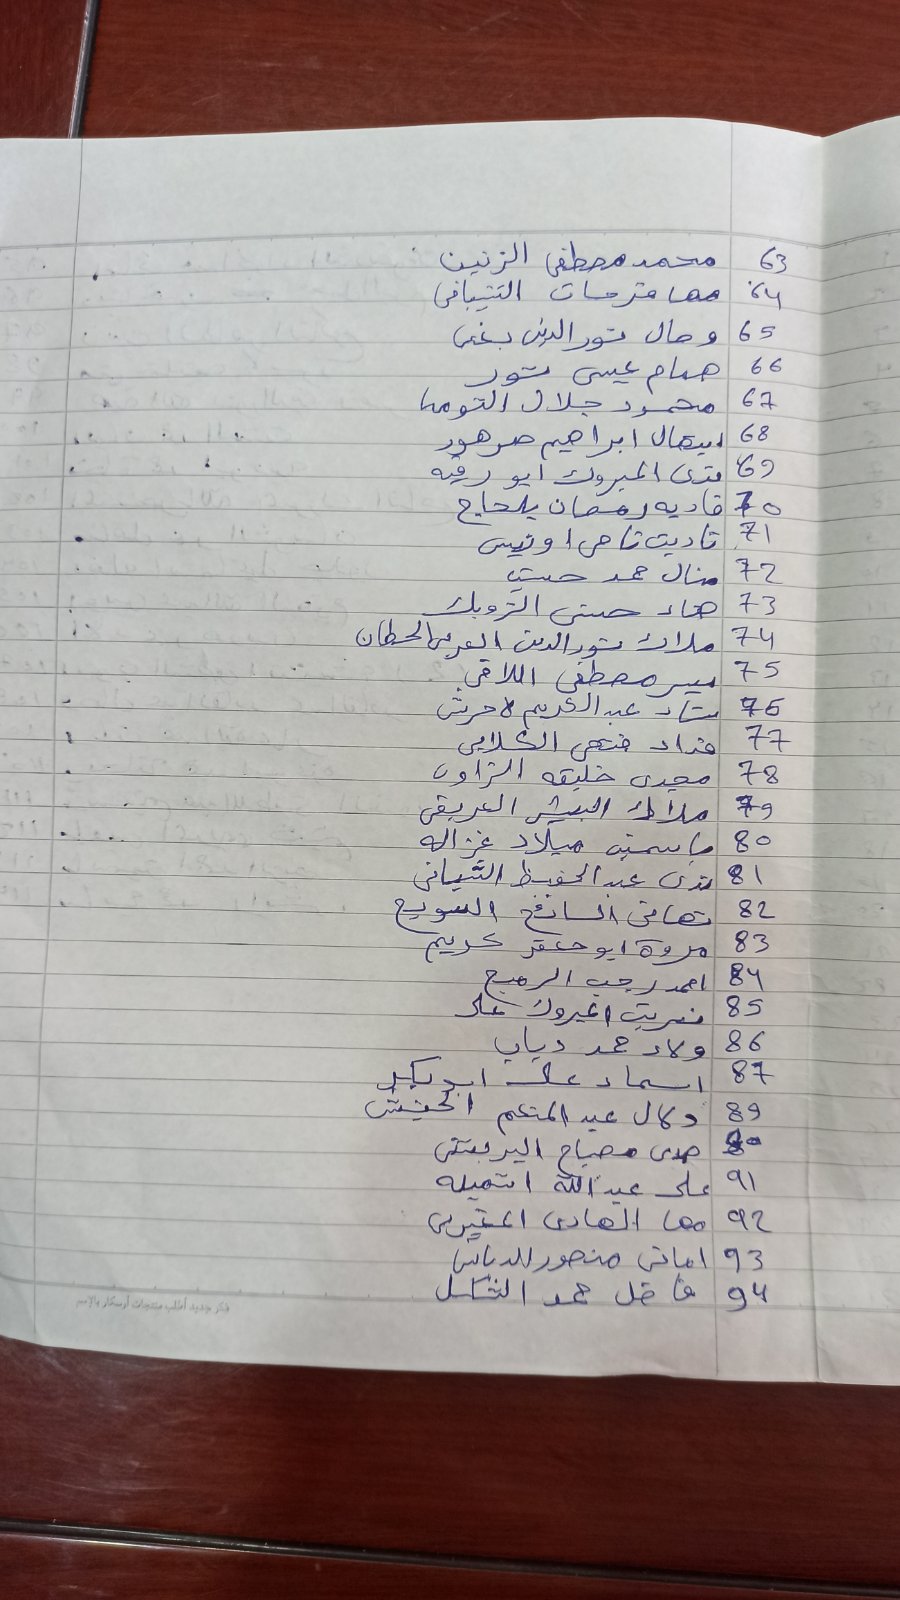 63 محمد مصطفى الزنين
64 مها فرحات الشيباني
65 وصال نورالدين بغني
66 هسام عيسى نور
67 محمود جلال التومي
68 ابتهال ابراهيم صرهود
69 ندى المبروك ابو رقيه
70 ناديه رمضان بلحاج
71 نادين ناجي اونيس
72 منال محمد حبيب
73 هناء حسنى الزوبك
74 ملاك نورالدين العربي الحطمان
75 ميسر مصطفى اللافي
76 سناء عبدالكريم لاحرش
77 فتحي الكلابي
78 مجدي خليفه الزاوي
79 ملاك البشير العريقي
80 ياسمين ميلاد غزاله
81 ندى عبدالحفيظ الشيباني
82 تهاني السائح السويح
83 مروة ابوجعفر كريم
84 احمد رجب الرميح
85 نسرين المبروك علي
86 ولاء محمد دياب
87 اسماء علي ابوبكر
89 عبدالمنعم
90 هدى مصباح
91 علي عبدالله انتميله
92 مها الهادي المغيربي
93 اماني منصور الدباس
94 فاضل محمد الشكل
فكر جديد أطلب منتجات أرسكار بالإسم